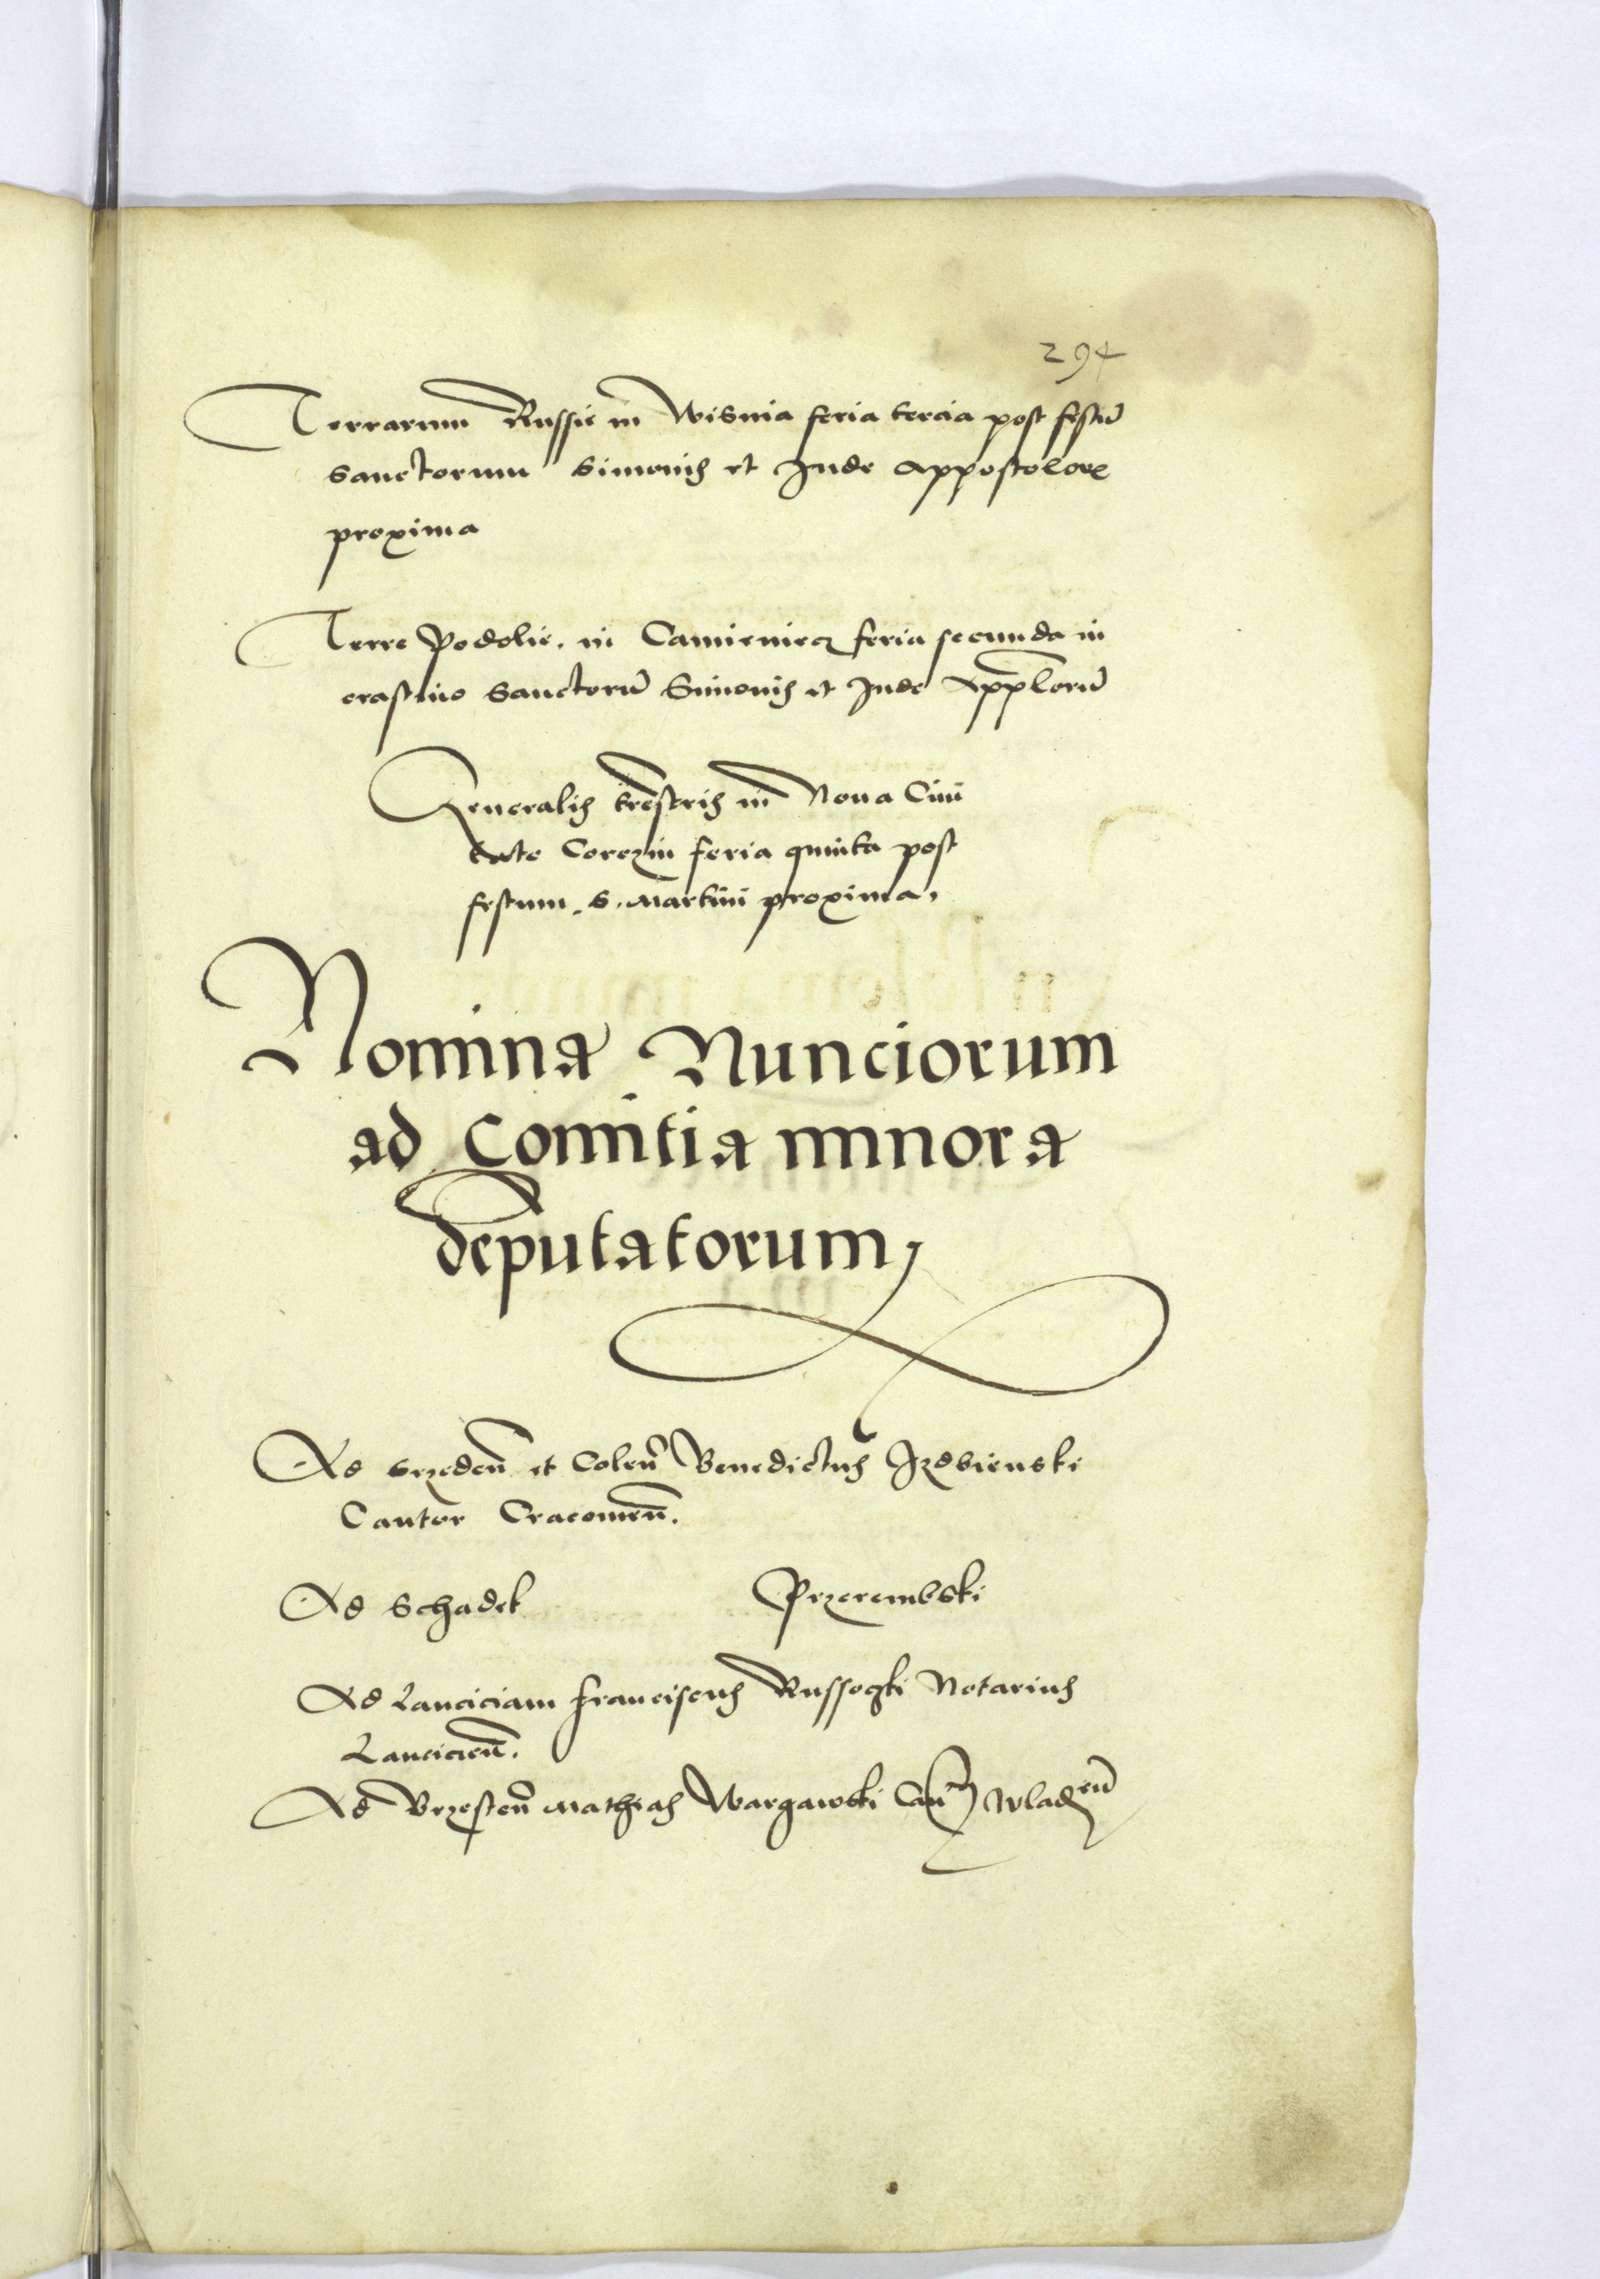 294
Terrarum Russie in Wisnia feria tercia post festū
sanctorum Simonis et Jude Appostolorꝝ
proxima
Terre Podolie. in Camieniecz feria secunda in
crastino Sanctorū Simonis et Jude App̄lorū
Generalis tr̄estris in Noua Ciui
tate Corczin feria quinta post
festum. S. Martini proxima,
Nomina Nunciorum
ad Comitia minora
deputatorum,
Ad Srzedeñ et Coleñ Benedictus Jzdbienski
Cantor Cracouieñ.
Ad Schadek Przerembski
Ad Lanciciam Franciscus Russoczki Notarius
Lancicieñ.
Ad Brzesteñ Mathias Wargawski Can Wladeñ